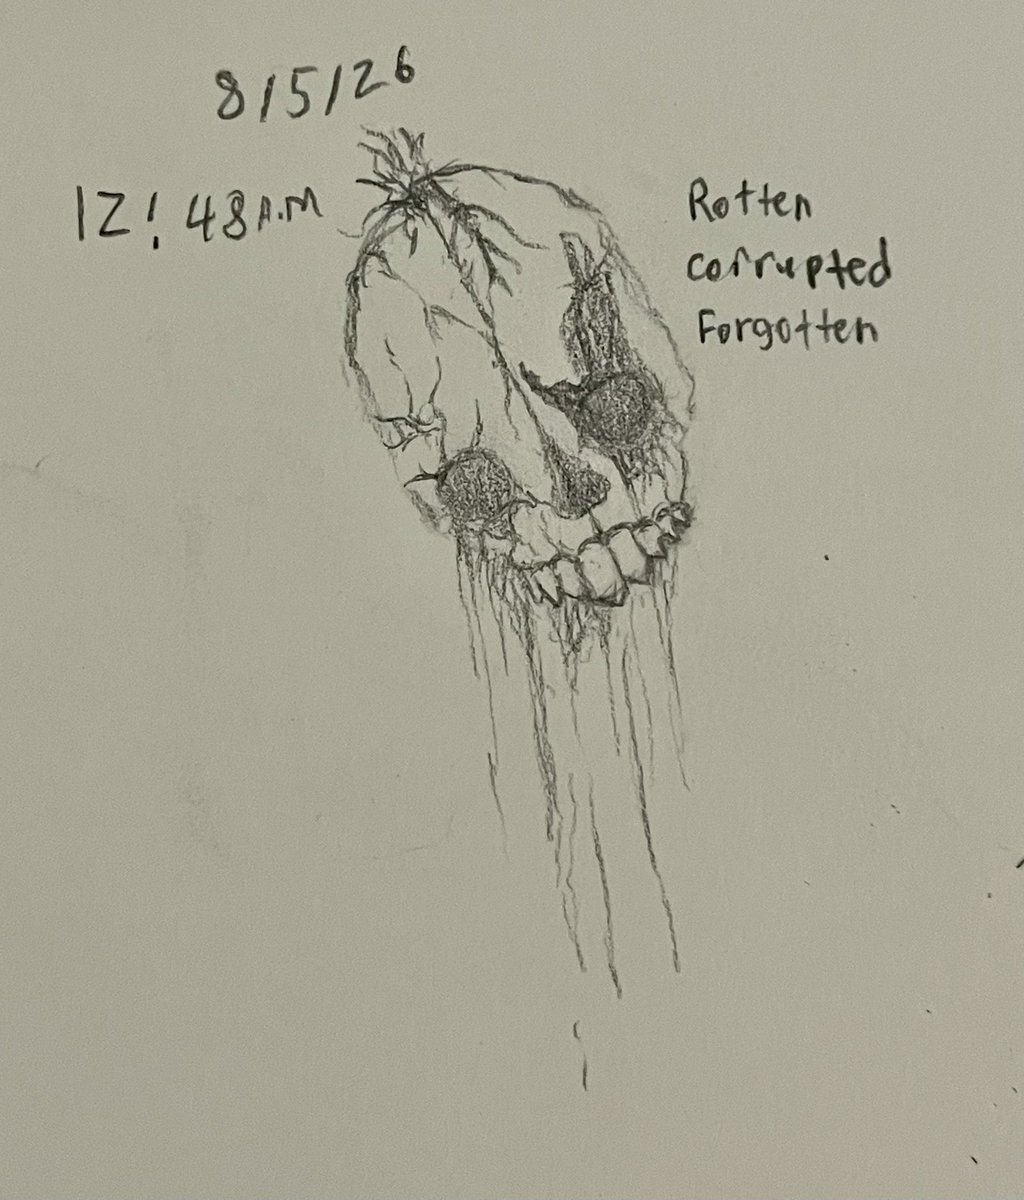 8/5/26
12:48 A.M
Rotten
corrupted
Forgotten